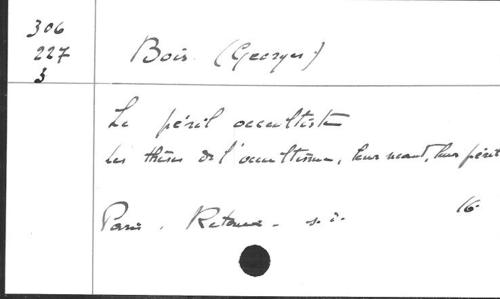 306
227
3
Bois (Georges)
Le péril occultiste
Les thèses de l'occultisme, leur néant, leur péril
Paris. Retaux - s. d.
16